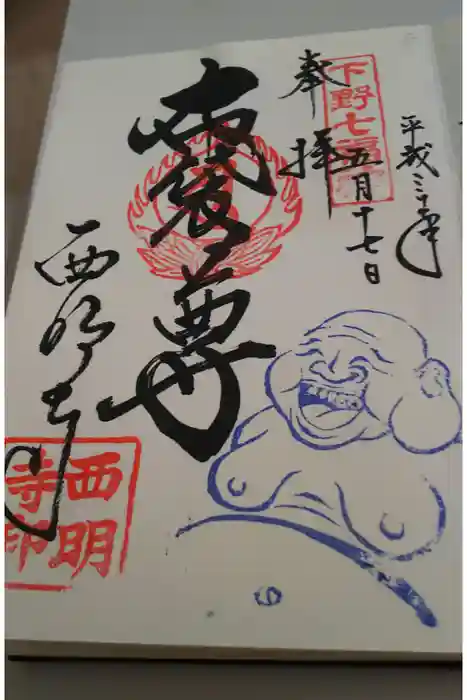 平成三十年
五月十七日
下野七福神
奉拝
布袋尊
西明寺
西明
寺印